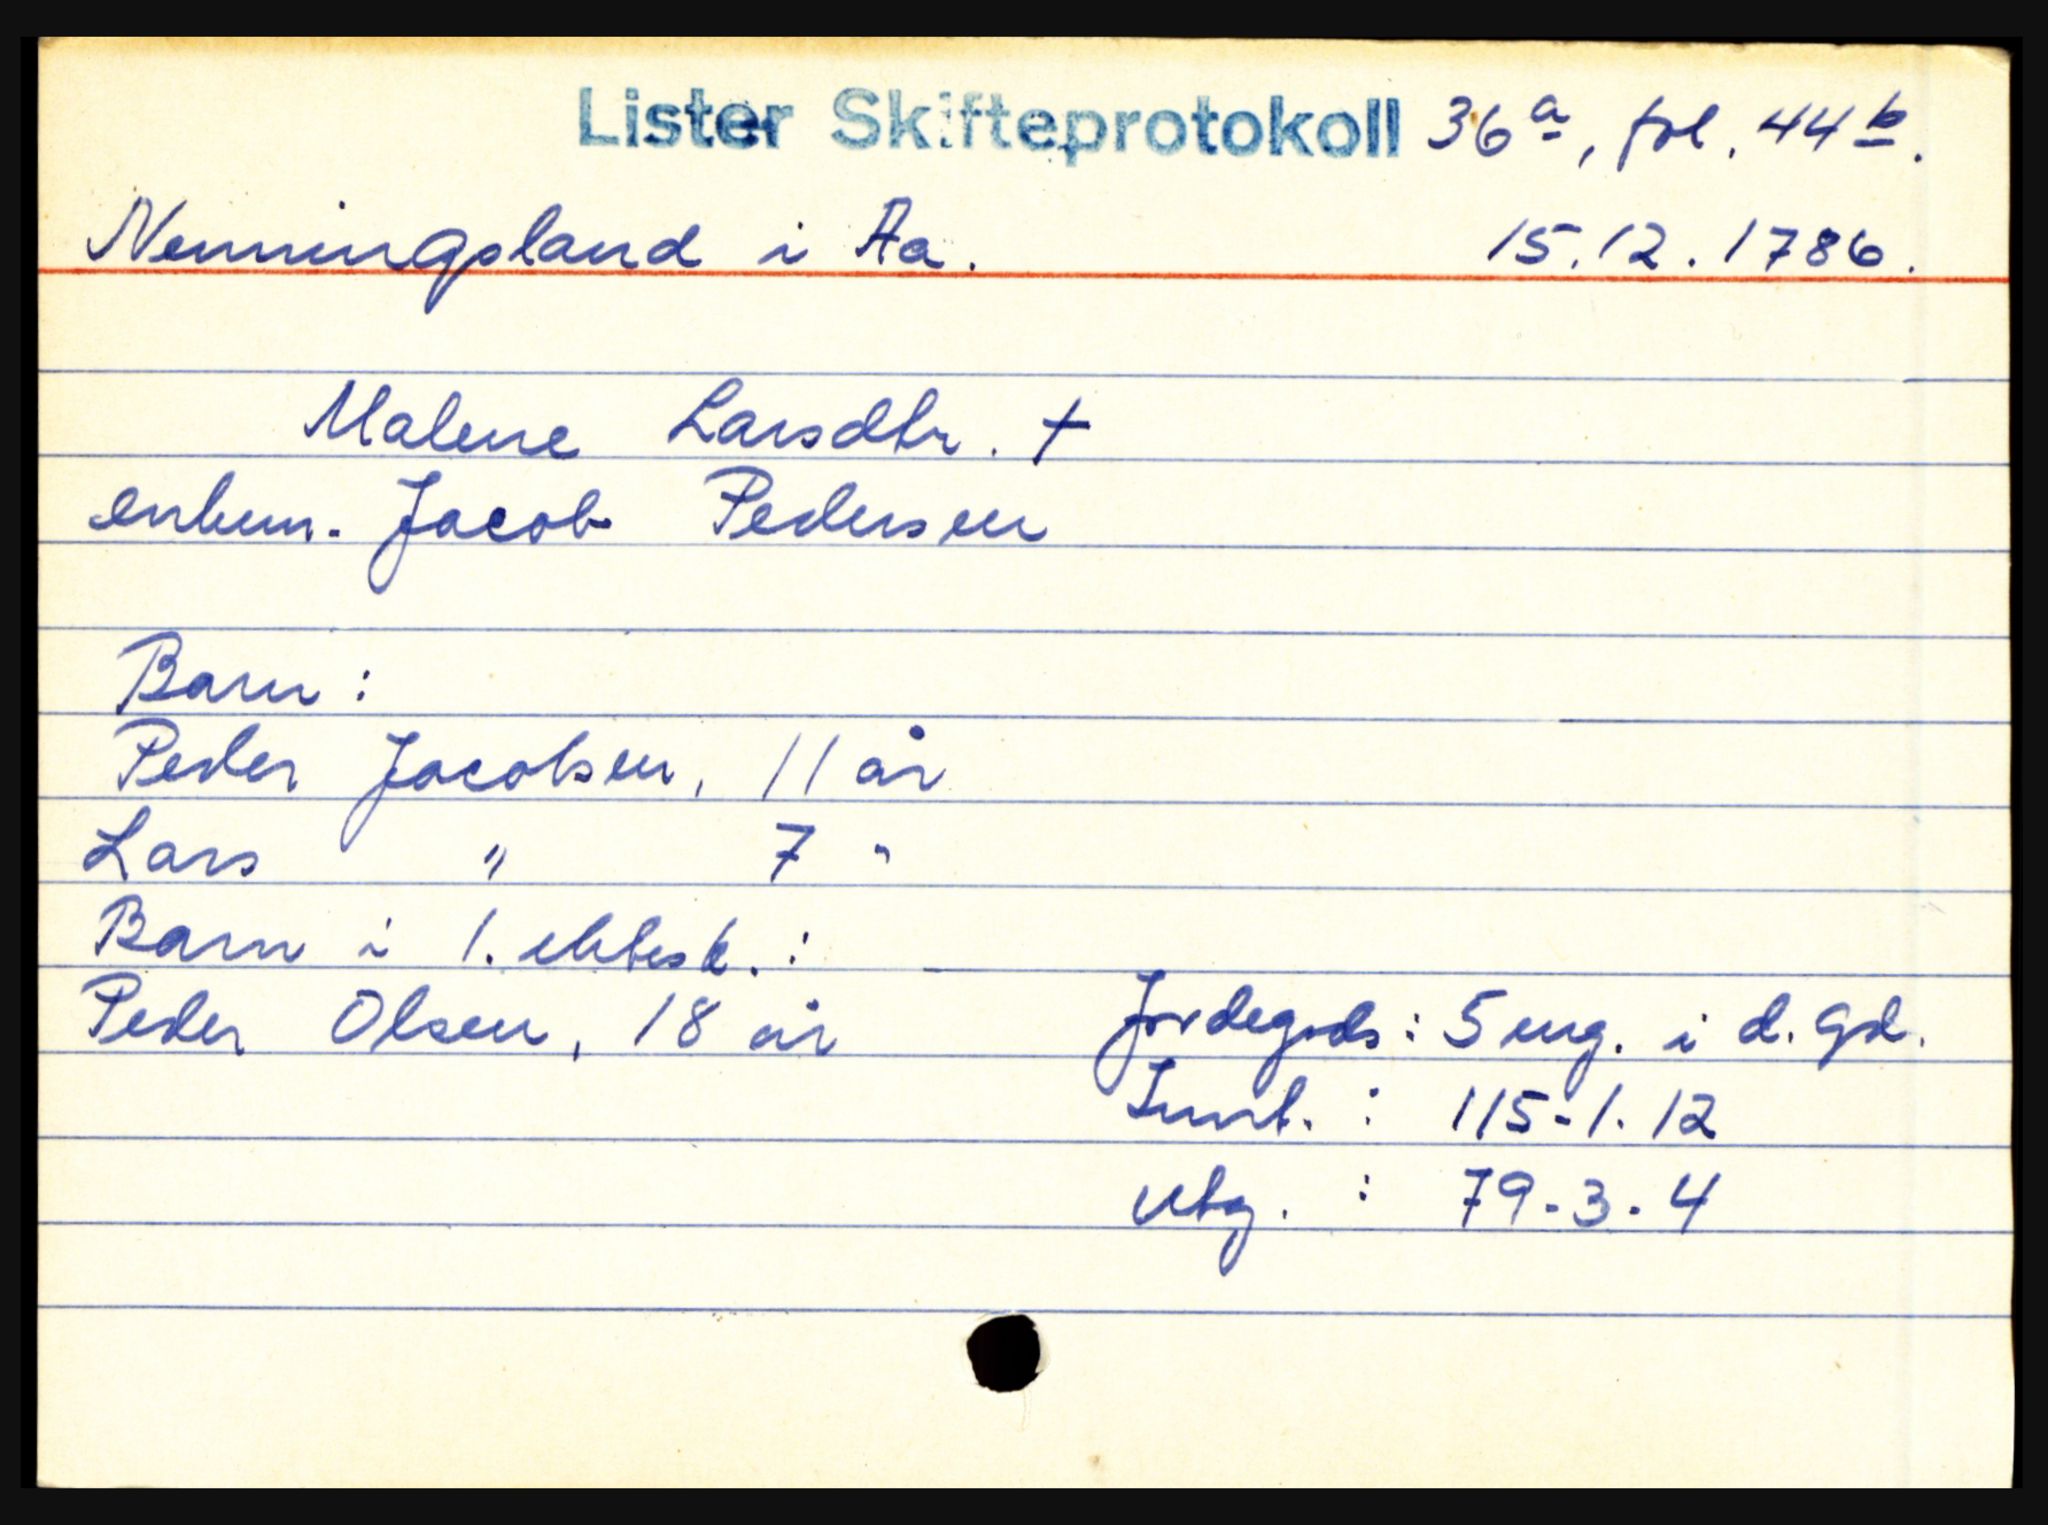 Lister Skifteprotokoll 36ª, fol. 44b.
Nenningsland i Aa. 15.12.1786.
Malene Larsdtr. †
enkem. Jacob Pedersen
Barn:
Peder Jacobsen, 11 år
Lars " 7 "
Barn i 1. ektesk.:
Peder Olsen, 18 år
Jordegods: 5 eng. i d. gd.
Innt.: 115-1.12
Utg.: 79-3-4